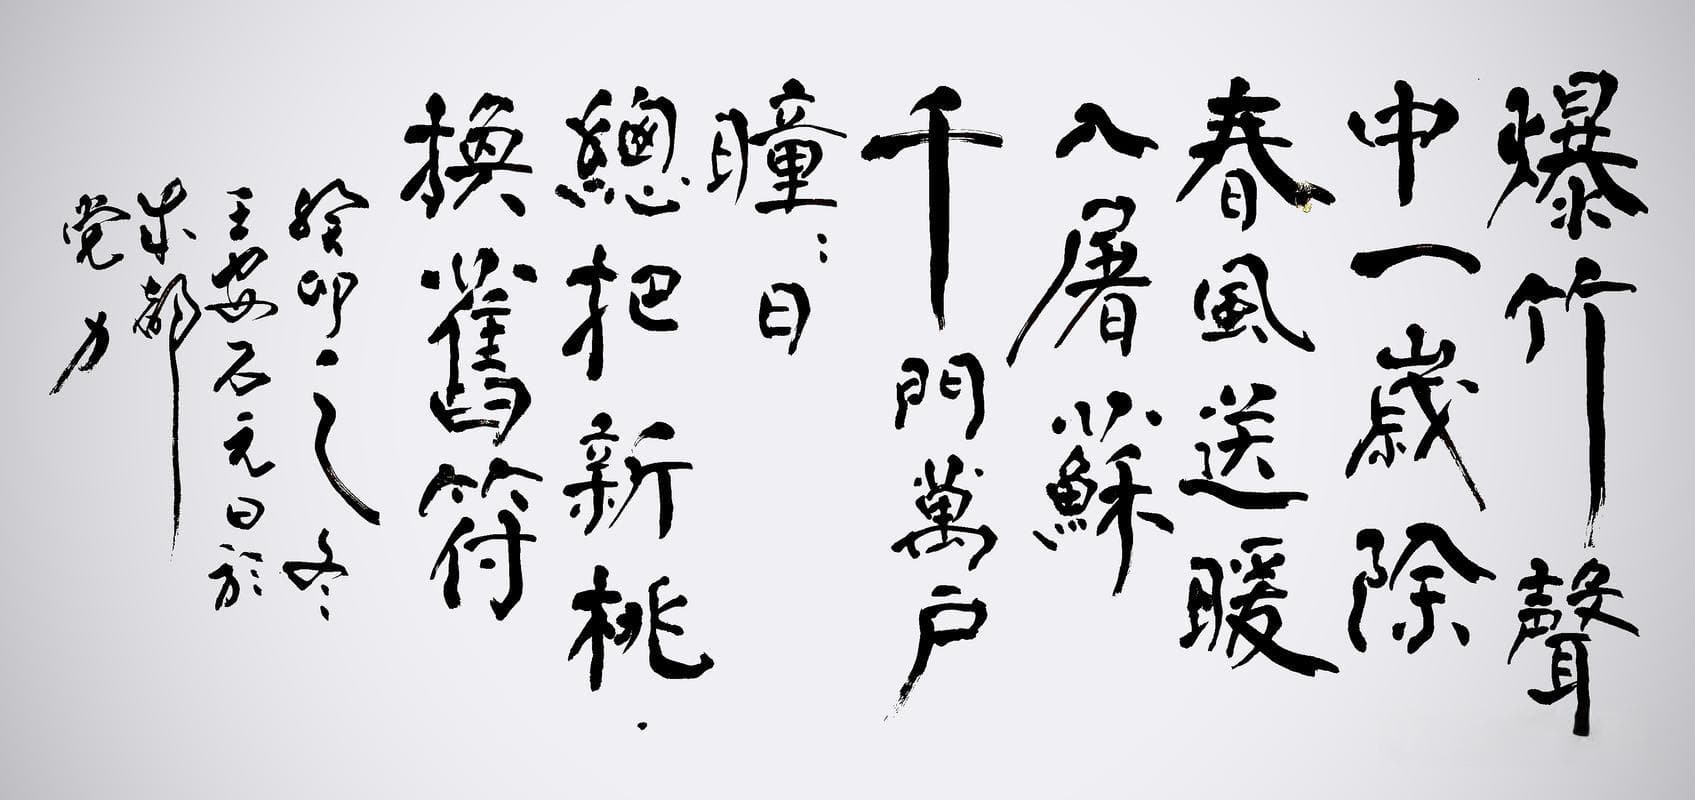 爆竹聲
中一歲除
春風送暖
入屠蘇
千門萬戶
瞳：日
總把新桃
換舊符
癸卯之冬
王安石元日於
成都
党力